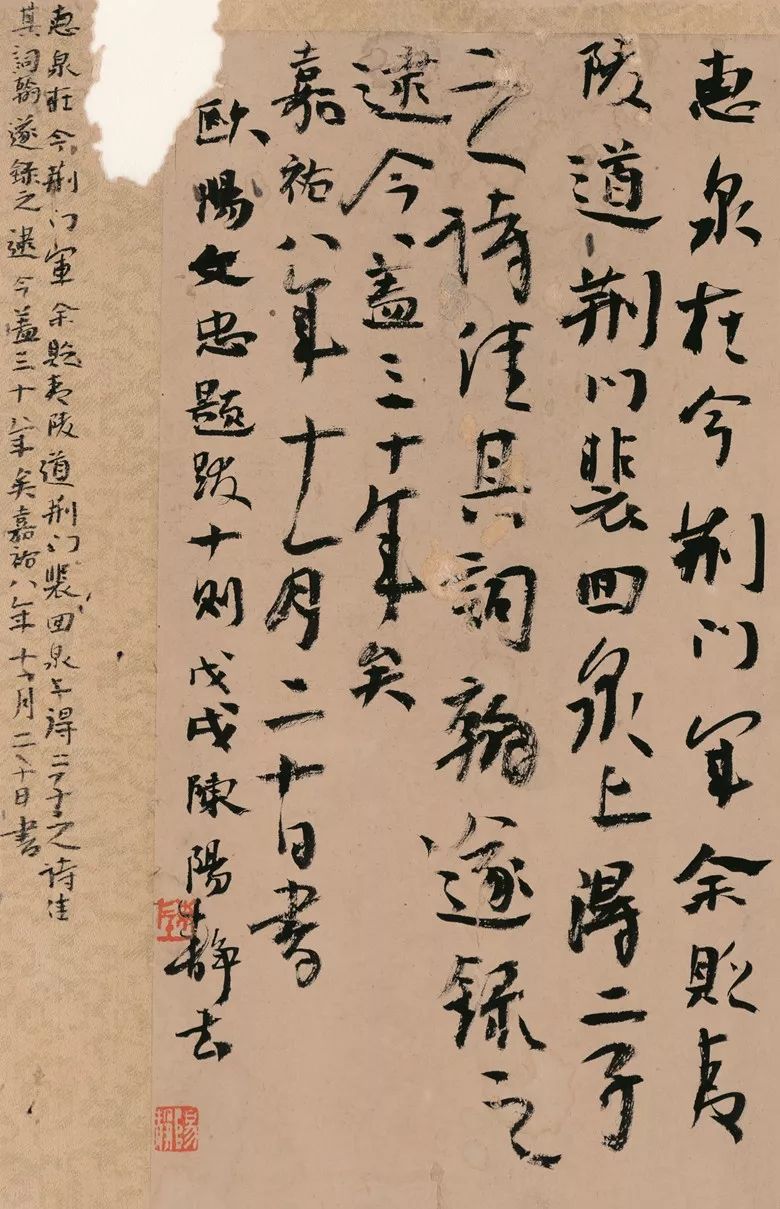 惠泉在今荆門軍余貶夷
陵道荆門裴回泉上得二子
之詩佳其詞翰遂録之
逮今蓋三十年矣
嘉祐八年十一月二十日書
歐陽文忠題跋十則戊戌陳陽静書
惠泉在今荆門軍余貶夷陵道荆門裴回泉上得二子之詩佳
其詞翰遂録之逮今蓋三十年矣嘉祐八年十一月二十日書